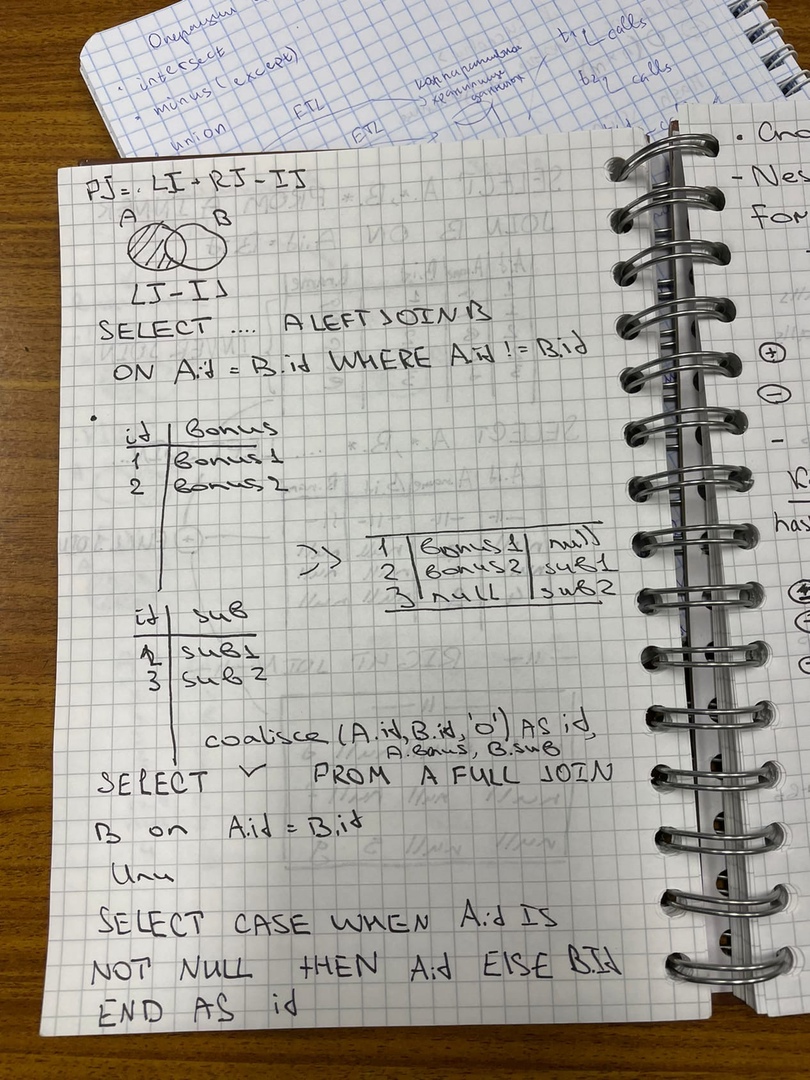 Операции
· intersect
· minus (except)
union
ETL
ETL
хранилище
данных
calls
calls
FJ = LJ + RJ - IJ
A B
LJ - IJ
SELECT .... A LEFT JOIN B
ON A.id = B.id WHERE A.id != B.id
id bonus
1 bonus1
2 bonus2
=> 1 bonus1 null
2 bonus2 sub1
3 null sub2
id sub
2 sub1
3 sub2
coalisce (A.id, B.id, '0') AS id,
A.bonus, B.sub
SELECT ✓ FROM A FULL JOIN
B on A.id = B.id
Или
SELECT CASE WHEN A.id IS
NOT NULL THEN A.id ELSE B.Id
END AS id
- Nes
For
+
-
-
has